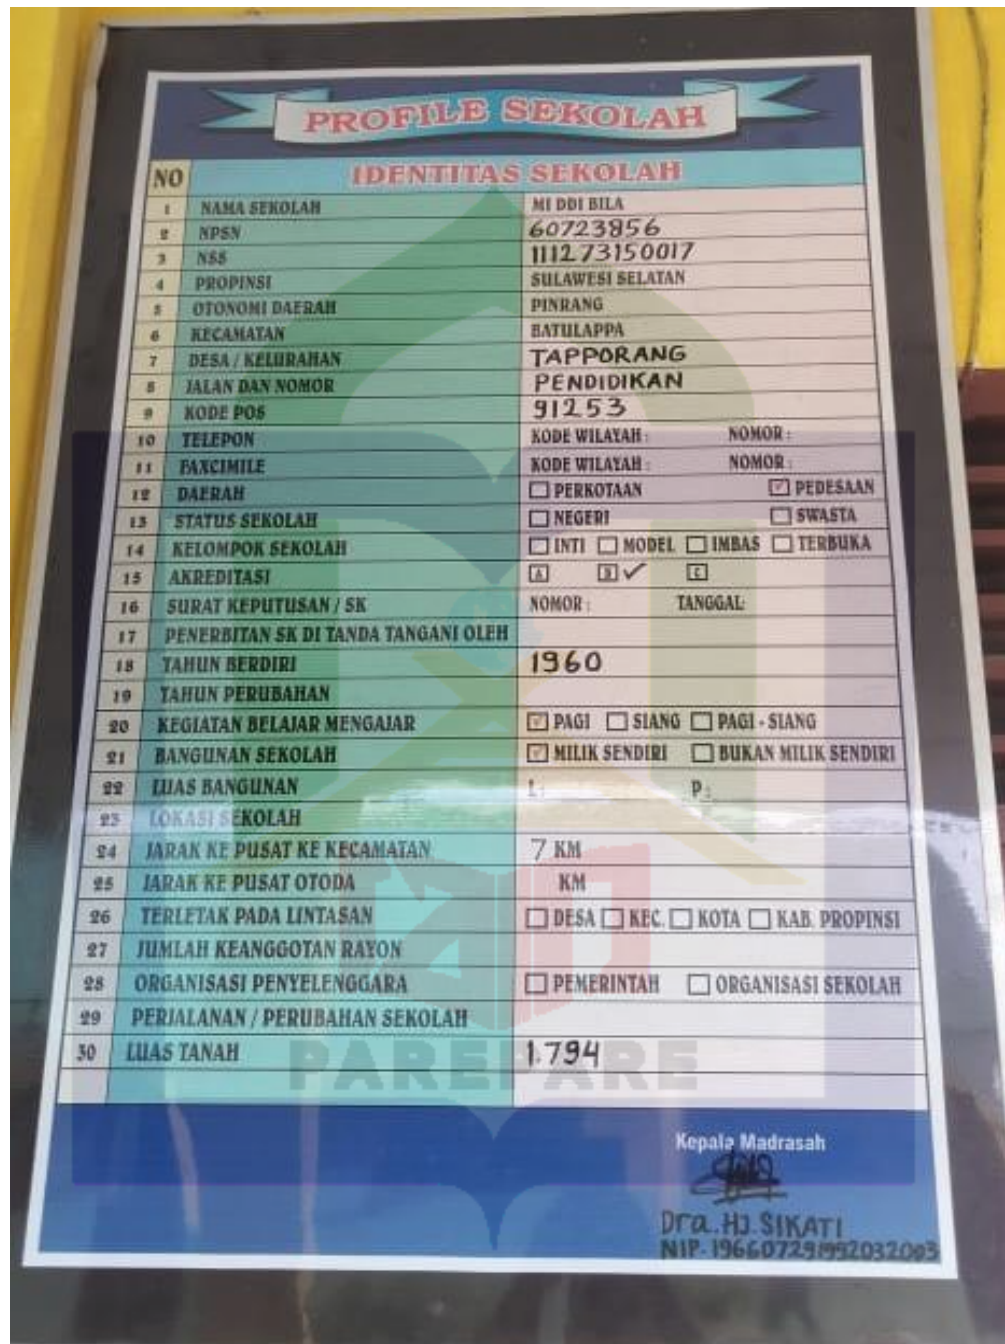 PROFILE SEKOLAH
NO IDENTITAS SEKOLAH
1 NAMA SEKOLAH MI DDI BILA
2 NPSN 60723856
3 NSS 111273150017
4 PROPINSI SULAWESI SELATAN
5 OTONOMI DAERAH PINRANG
6 KECAMATAN BATULAPPA
7 DESA / KELURAHAN TAPPORANG
8 JALAN DAN NOMOR PENDIDIKAN
9 KODE POS 91253
10 TELEPON KODE WILAYAH : NOMOR :
11 FAXCIMILE KODE WILAYAH : NOMOR :
12 DAERAH PERKOTAAN PEDESAAN
13 STATUS SEKOLAH NEGERI SWASTA
14 KELOMPOK SEKOLAH INTI MODEL IMBAS TERBUKA
15 AKREDITASI A B C
16 SURAT KEPUTUSAN / SK NOMOR : TANGGAL:
17 PENERBITAN SK DI TANDA TANGANI OLEH
18 TAHUN BERDIRI 1960
19 TAHUN PERUBAHAN
20 KEGIATAN BELAJAR MENGAJAR PAGI SIANG PAGI - SIANG
21 BANGUNAN SEKOLAH MILIK SENDIRI BUKAN MILIK SENDIRI
22 LUAS BANGUNAN L : P :
23 LOKASI SEKOLAH
24 JARAK KE PUSAT KE KECAMATAN 7 KM
25 JARAK KE PUSAT OTODA KM
26 TERLETAK PADA LINTASAN DESA KEC. KOTA KAB. PROPINSI
27 JUMLAH KEANGGOTAN RAYON
28 ORGANISASI PENYELENGGARA PEMERINTAH ORGANISASI SEKOLAH
29 PERJALANAN / PERUBAHAN SEKOLAH
30 LUAS TANAH 1.794
PAREPARE
Kepala Madrasah
Dra. HJ. SIKATI
NIP. 196607291992032003